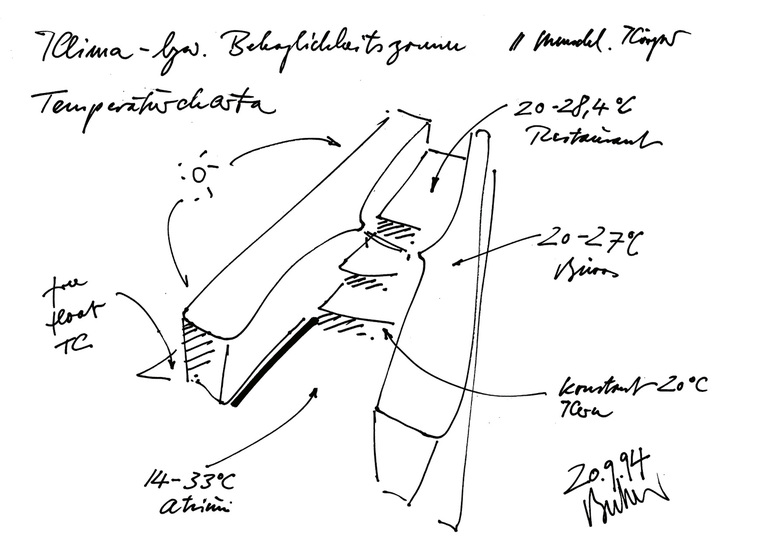 Klima- bzw. Behaglichkeitszonen
Temperaturcharta
20-28,4°C
Restaurant
20-27°C
Büros
free
float
TC
konstant 20°C
Kern
14-33°C
Atrium
20.9.94